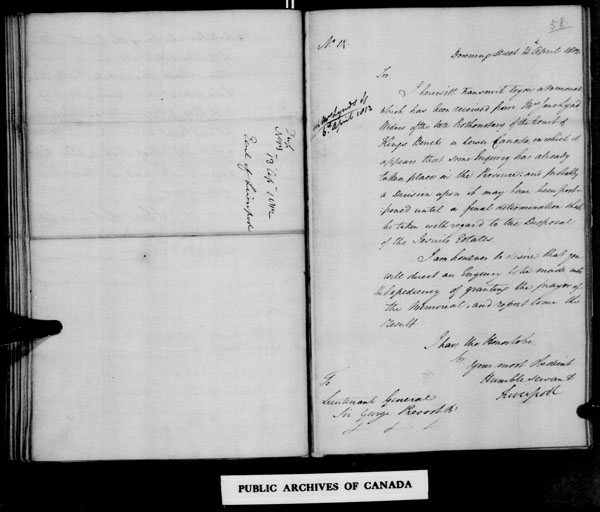 Dup
No 13
18 Ap. 1812
Earl of Liverpool
58
No 13.
Downing Street April 1812
Sir
Mrs Lynds of
6th April 1812
I herewith transmit to you a Memorial
which has been received from Mrs Lynd
Widow of the late Prothonotary of the Court of
Kings Bench in Lower Canada, in which it
appears that some Enquiry has already
taken place in the Province, and probably
a Decision upon it may have been post-
poned until a final determination shall
be taken with regard to the Disposal
of the Jesuits Estates.
I am however to desire that you
will direct an Enquiry to be made into
the Expediency of granting the prayer of
the Memorial, and report to me the
result
I have the Honor to be,
Sir
Your most Obedient
Humble Servant
Liverpool
To
Lieutenant General
Sir George Prevost Bt
PUBLIC ARCHIVES OF CANADA